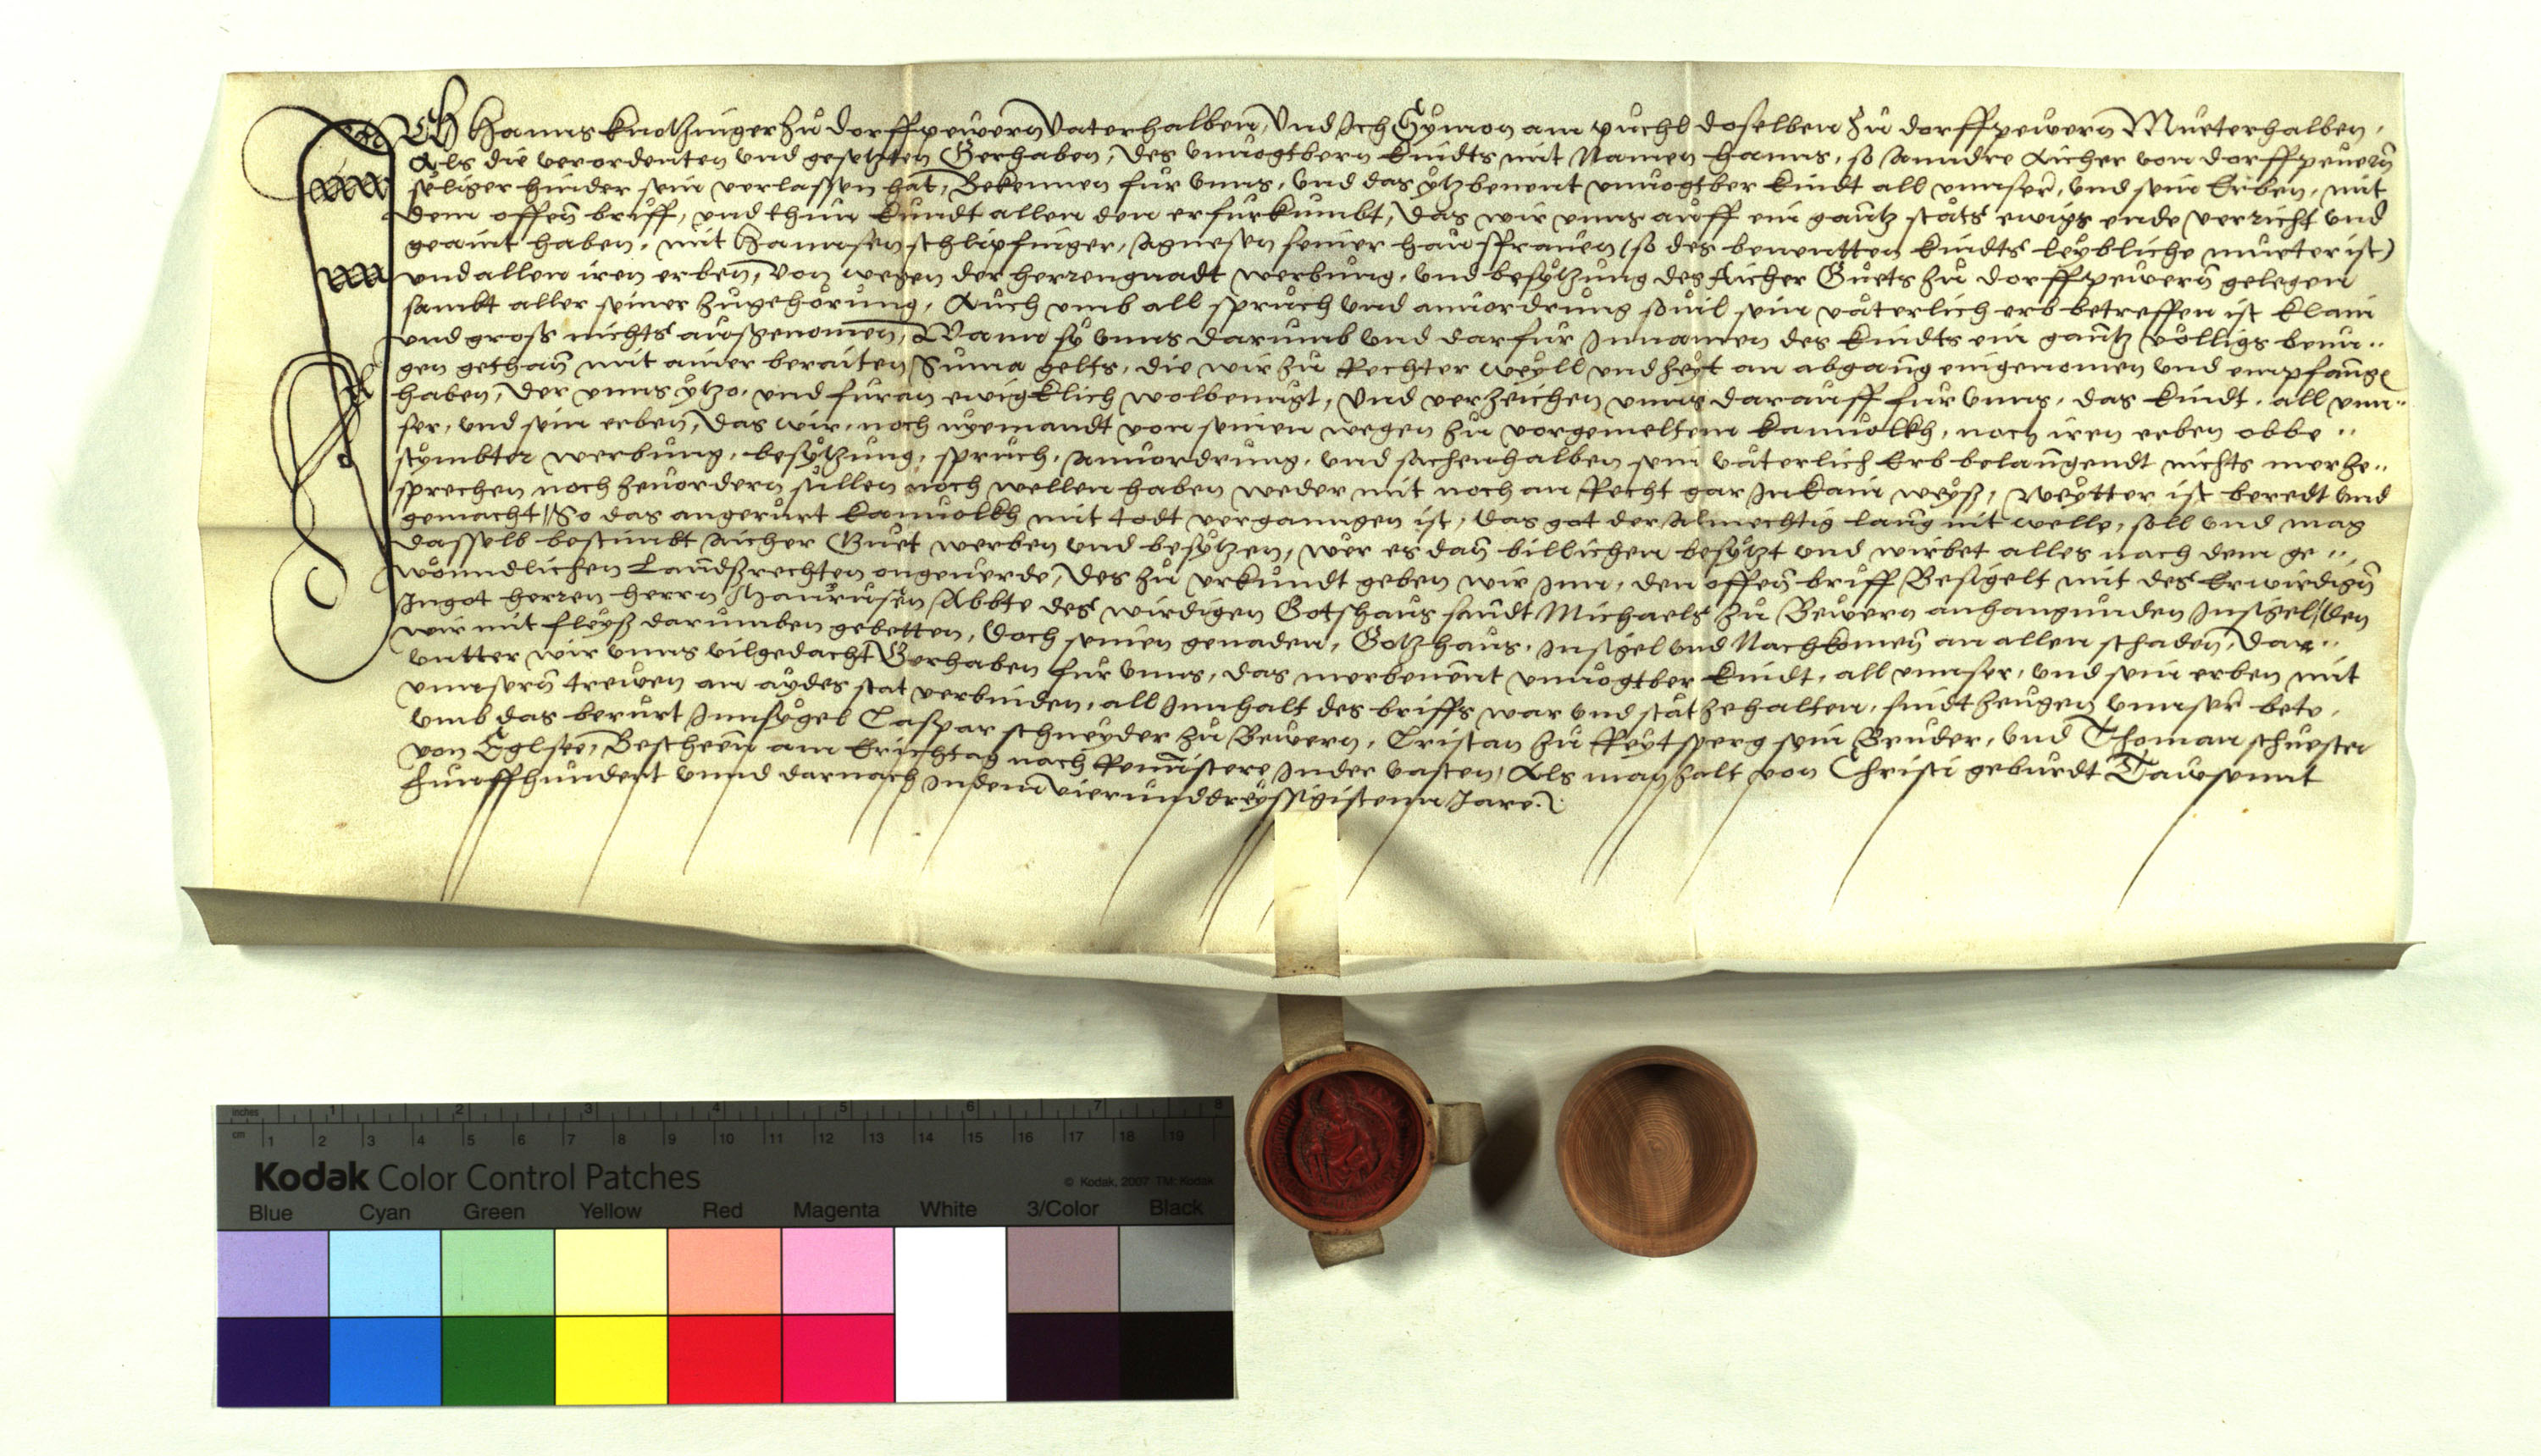 ICH Hanns Knotzinger zů dorffpeẘern Vaterhalben, Und Ich Sÿmon am půchl doselben zů dorffpewern Můeterhalben,
Als die verordenten und gesetzten Gerhaben, des unuogtbern kindts mit Namen hanns, so Anndre Aicher von dorffpeẘern
seliger hinder sein verlassen hat, Bekennen fur unns, und das ÿtzbenent unuogtber kindt all unnser, und sein Erben, mit
dem offen briff, und thun kundt allen den erfurkumbt, das wir unns auff ein gantz stäts ewigs ende verricht und
geaint haben, mit Hannsen schlipfinger, Agnesen seiner hausfrauen (so des benentten kindts leÿbliche můeter ist)
und allen iren erben, Von wegen der herrengnadt werbung, und besÿtzung des Aicher Guets zů dorffpeẘern gelegen
sambt aller seiner zůgehörung, Auch umb all sprůch und anuordrung souil sein väterlich erb betreffen ist klain
und gross nichts außgenomen, Wann sÿ unns darumb und darfur Innamen des kindts ein gantz völligs benu..
gen gethan mit ainer beraiten Suma gelts, die wir zů Rechter weÿll und zeÿt an abgang eingenomen und empfange
haben, Der unns ÿtzo, und furan ewigklich wolbenugt, Und verzeichen unns darauff fur unns, das kindt, all unn..
ser, und sein erben, das wir, noch nÿemandt von seinen wegen zů vorgemeltem kanuolkh, noch iren erben obbe..
stÿmbter werbung, besÿtzung, spruch, Anuordrung, und sachenhalben sein väterlich Erb belangendt nichts mer ze..
sprechen noch zeuordern sullen noch wellen haben weder mit noch an Recht gar Inkain weÿß, Weÿtter ist beredt und
gemacht So das angerurt kanuolkh mit todt vergangen ist, das got der Almechtig lang nit welle, soll und mag
dasselb bestimbt Aicher Guet werben und besÿtzen, wer es dan billichen besÿtzt und wirbet alles nach dem ge..
wonndlichen Landßrechten ongeuerde, Des zů urkundt geben wir Inn, den offen briff Besigelt mit des Erwirdign
Ingot herren herrn Abbte des wirdigen Gotshaus sandt Michaels zů Beẘern anhangunden Insigel, den
wir mit fleÿß darumben gebetten, Doch seinen genaden, Gotzhaus, Insigel und Nachkomen an allen schaden, Dar..
untter wir unns vilgedacht Gerhaben fur unns, das merbenent unuogtber kindt, all unnser, und sein erben mit
unnsern treẘen an aÿdes stat verbinden, all Innhalt des briffs war und stät zehalten, sindt zeugen unnser bete,
umb das berurt Innsÿgel Caspar schneÿder zů Beẘern, Cristan zů Reÿtsperg sein Bruder, und Thoman schuester
von Eglsee, Bescheen am Erichtag nach Reministere Inder vasten, Als man zalt von Christi geburdt Tausennt
Funffhundert unnd darnach Indem Vierunddreÿssigistenn Jare.

Kodak Color Control Patches
© Kodak, 2007 TM: Kodak
inches 1 2 3 4 5 6 7 8
cm 1 2 3 4 5 6 7 8 9 10 11 12 13 14 15 16 17 18 19
Blue Cyan Green Yellow Red Magenta White 3/Color Black